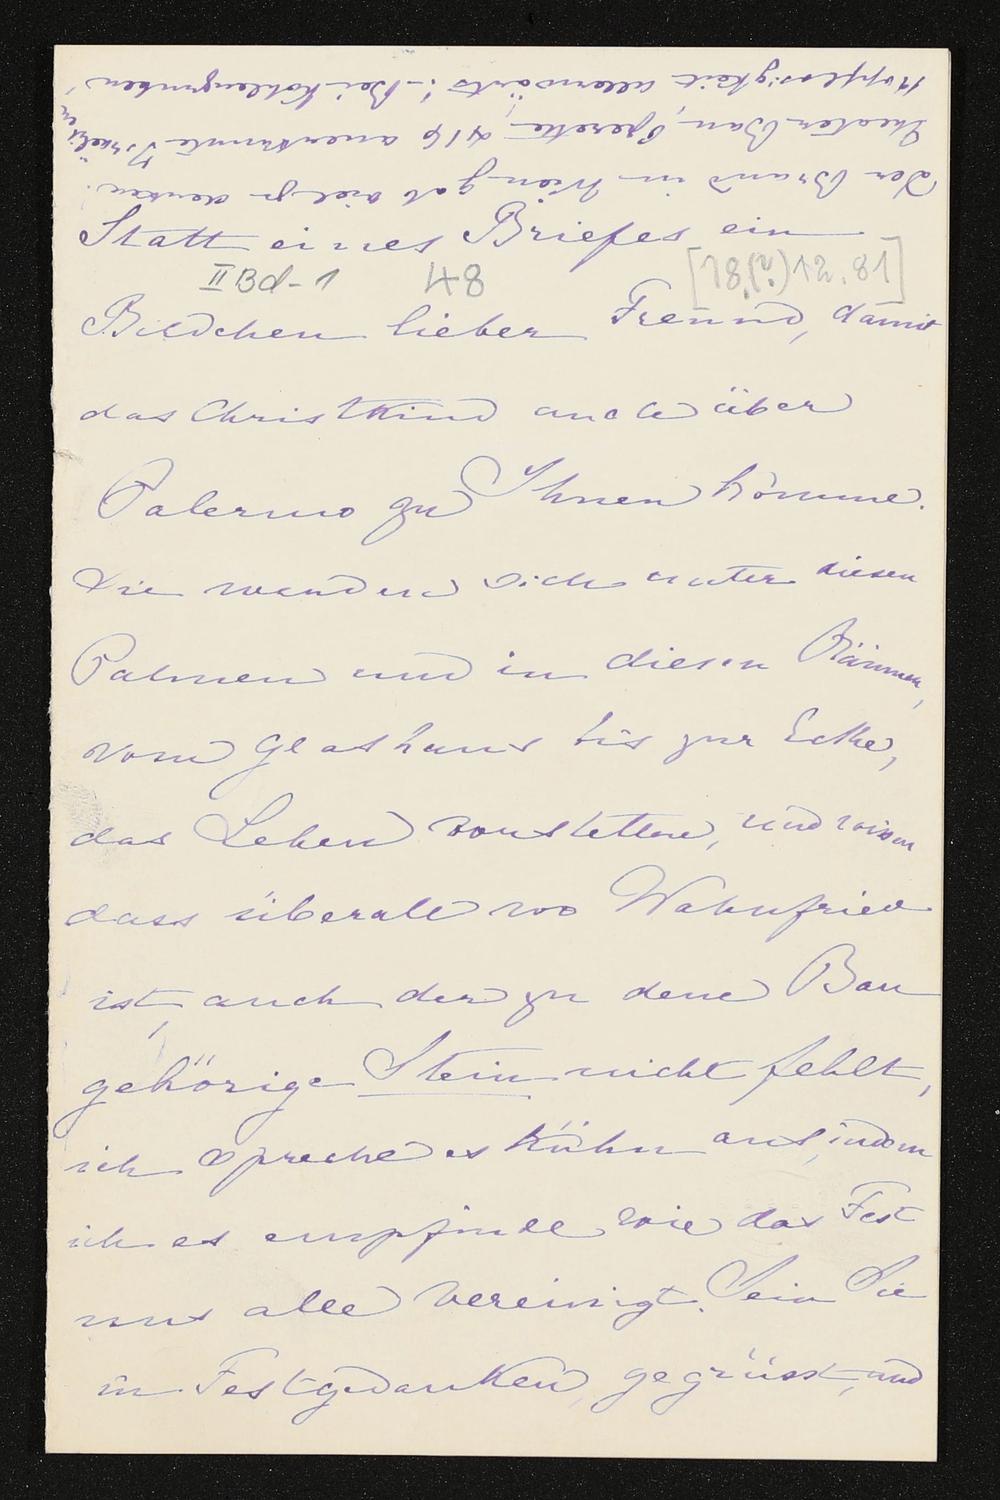 Der Brand in Wien gab viel zu denken.
Theater Bau, Operette, 416 anerkannte Israeliten,
Kopflosigkeit allerwärts! – Bei Kohlengruben
Statt eines Briefes ein
II Bd - 1 48 [18.(?)12.81]
Bildchen lieber Freund, damit
das Christkind auch über
Palermo zu Ihnen komme.
Sie werden sich unter diesen
Palmen und in diesen Räumen,
vom Glashaus bis zur Ecke,
das Leben vorstellen, und wissen
dass überall wo Wahnfried
ist, auch der zu dem Bau
gehörige Stein nicht fehlt,
ich spreche es kühn aus, indem
ich es empfinde wie das Fest
uns alle vereinigt. Sein Sie
in Festgedanken, gegrüsst, und